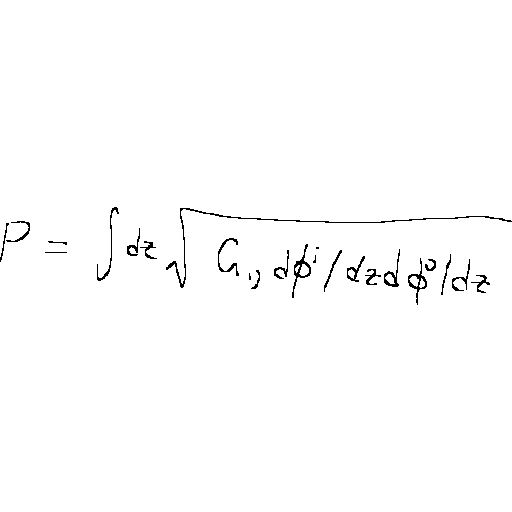 P = ∫dz √(G_{ij} dϕ^i/dz dϕ^j/dz)